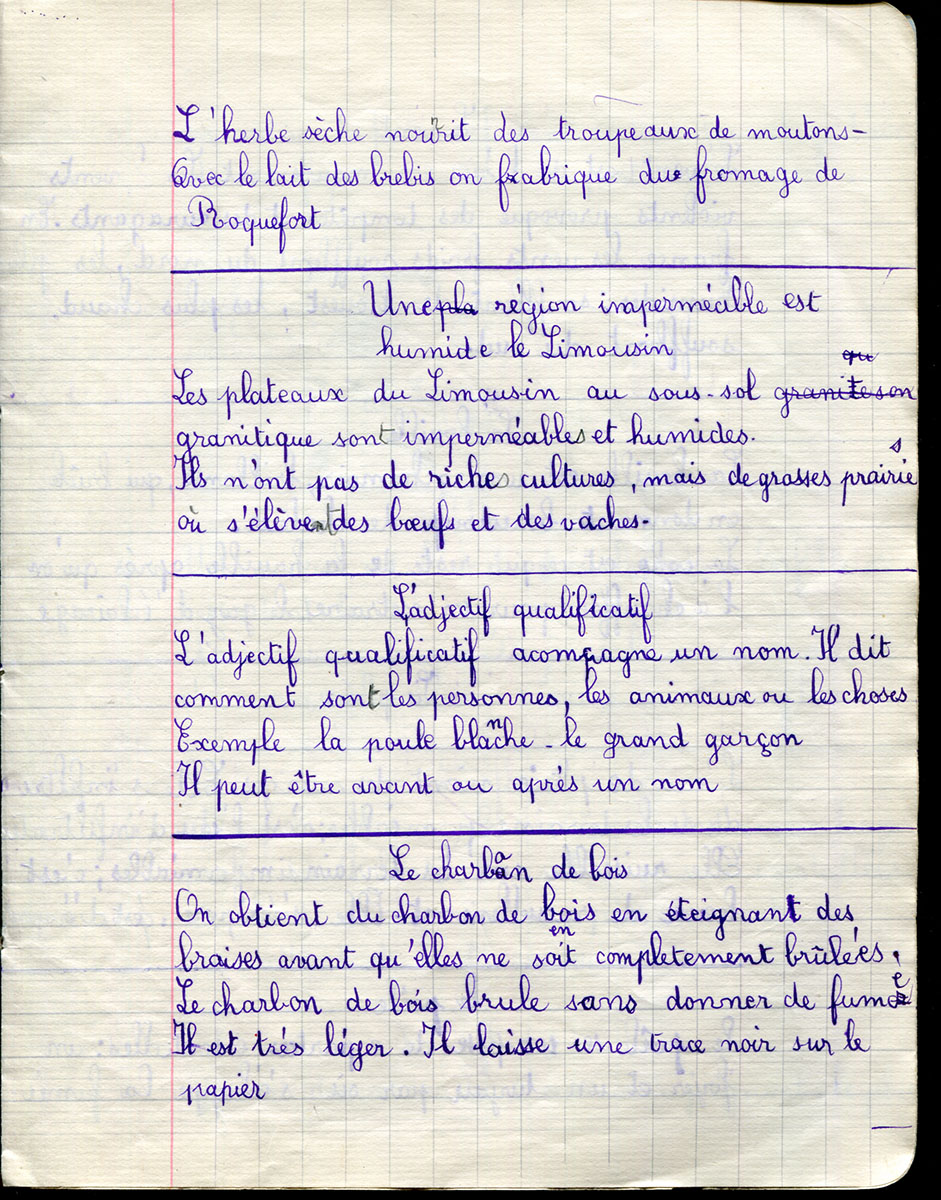 L'herbe sèche nourrit des troupeaux de moutons-
Avec le lait des brebis on fabrique du fromage de
Roquefort
Une pla région imperméable est
humide le Limousin
Les plateaux du Limousin au sous-sol graniteson qu
granitique sont imperméables et humides.
Ils n'ont pas de riches cultures, mais de grasses prairies
où s'élèvent des bœufs et des vaches.
L'adjectif qualificatif
L'adjectif qualificatif acompagne un nom. Il dit
comment sont les personnes, les animaux ou les choses
Exemple la poule blanche - le grand garçon
Il peut être avant ou aprés un nom
Le charbon de bois
On obtient du charbon de bois en éteignant des
braises avant qu'elles ne soient completement brûlées.
Le charbon de bois brule sans donner de fumée
Il est trés léger. Il laisse une trace noir sur le
papier